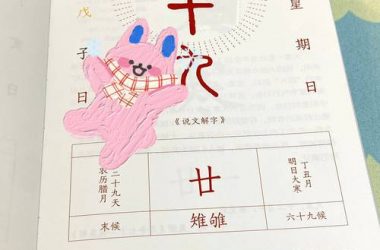 戊子日
十九
星期日
《说文解字》
农历腊月
二十九天
廿
丁丑月
明日大寒
末候
雉雊
六十九候